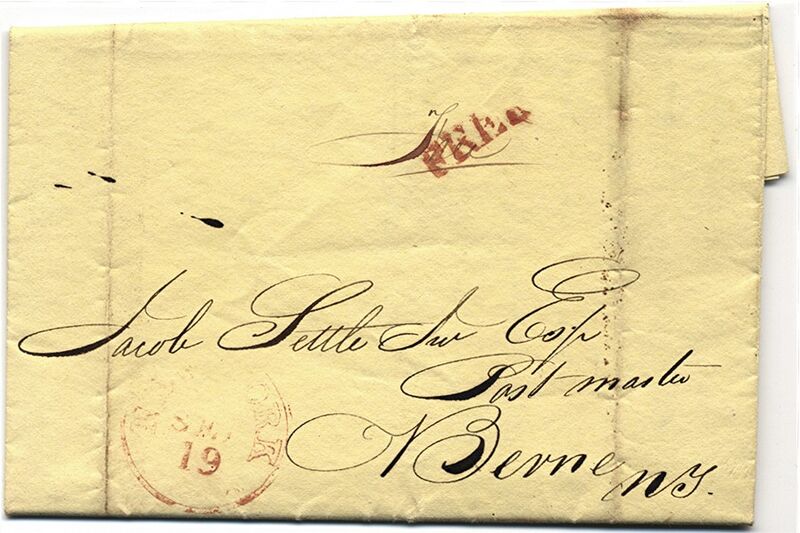 FREE
Jacob Settle Jur Esqr
Post master
Berne
NY.
19